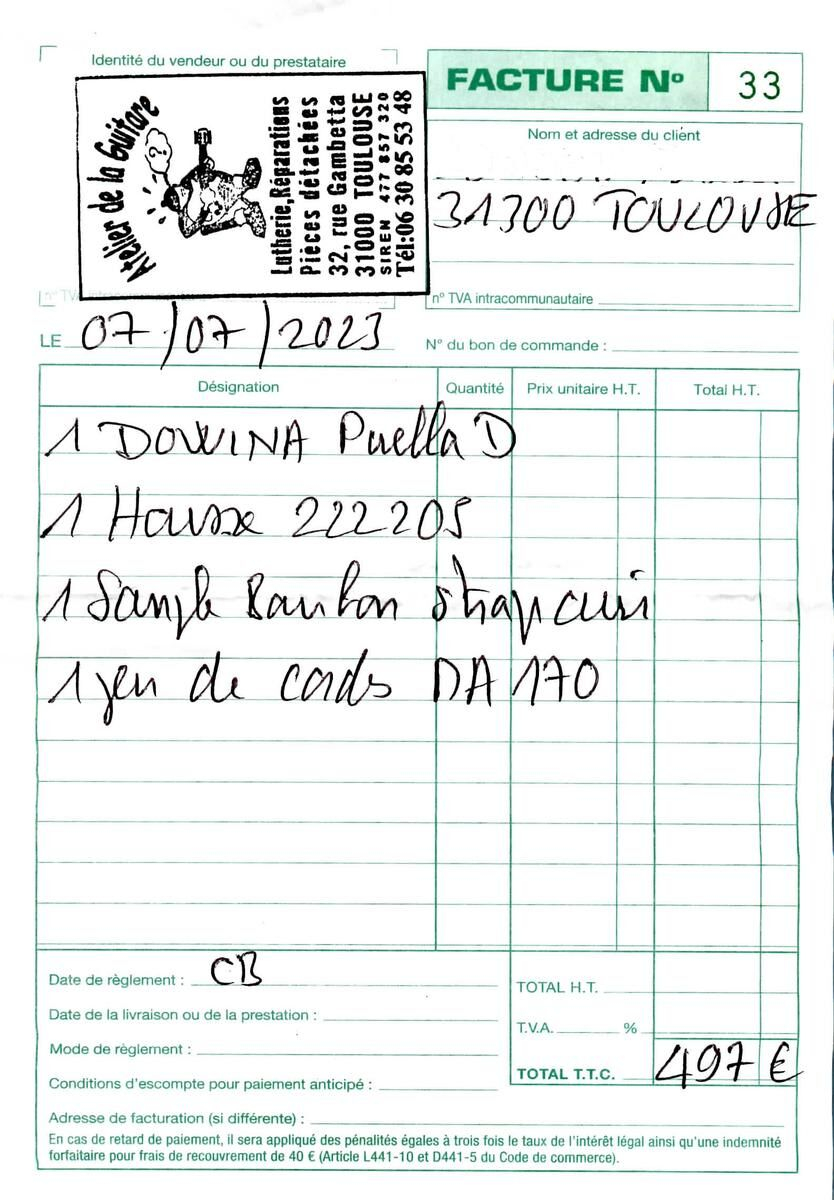 Identité du vendeur ou du prestataire
Atelier de la Guitare
?
Lutherie,Réparations
Pièces détachées
32, rue Gambetta
31000 TOULOUSE
SIREN 477 857 320
Tél:06 30 85 53 48
FACTURE Nº 33
Nom et adresse du client
31300 TOULOUSE
n° TVA
n° TVA intracommunautaire
LE 07/07/2023
N° du bon de commande :
Désignation Quantité Prix unitaire H.T. Total H.T.
1 DOWINA Puella D
1 Housse 222205
1 Sangle Bourbon strap cuir
1 jeu de cords DA 170
Date de règlement : CB
TOTAL H.T.
Date de la livraison ou de la prestation :
T.V.A. %
Mode de règlement :
TOTAL T.T.C. 497 €
Conditions d'escompte pour paiement anticipé :
Adresse de facturation (si différente) :
En cas de retard de paiement, il sera appliqué des pénalités égales à trois fois le taux de l'intérêt légal ainsi qu'une indemnité
forfaitaire pour frais de recouvrement de 40 € (Article L441-10 et D441-5 du Code de commerce).